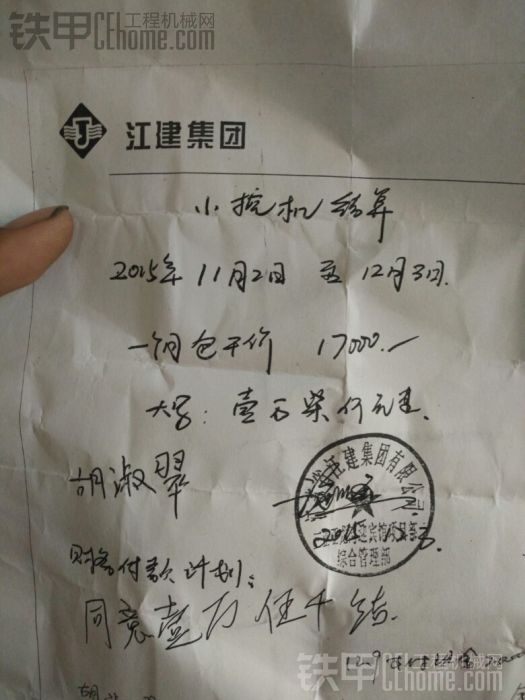 铁甲 工程机械网 CEhome.com
江建集团
小挖机结算
2015年11月2日 至 12月3日.
一个月包干价 17000.-
大写: 壹万柒仟元
胡淑翠
江建集团有限公司
综合管理部
财务付款计划:
同意壹万伍千结.
铁甲 工程机械网 CEhome.com